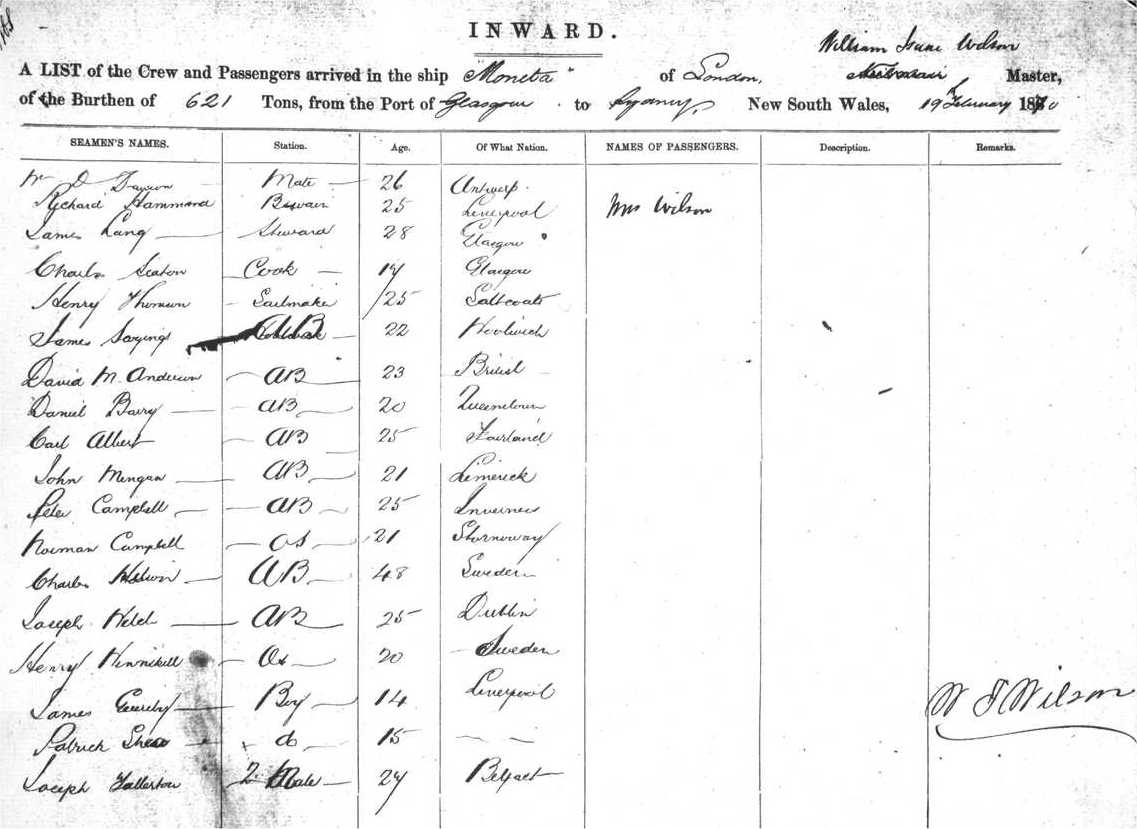 INWARD.
William Isaac Wilson
A LIST of the Crew and Passengers arrived in the ship "Moneta" of London, Master,
of the Burthen of 621 Tons, from the Port of Glasgow to Sydney, New South Wales, 19 February 1870
SEAMEN'S NAMES. Station. Age. Of What Nation. NAMES OF PASSENGERS. Description. Remarks.
Wm D Dawson Mate 26 Antwerp
Richard Hammond Bswain 25 Liverpool Mrs Wilson
James Lang Steward 28 Glasgow
Charles Seaton Cook 19 Glasgow
Henry Thomson Sailmaker 25 Saltcoats
James Sayings AB 22 Woolwich
David M. Anderson AB 23 British
Daniel Barry AB 20 Queenstown
Carl Albert AB 25
John Mengan AB 21 Limerick
Peter Campbell AB 25 Inverness
Norman Campbell OS 21 Stornoway
Charles AB 48 Sweden
Joseph Welch AB 25 Dublin
Henry Os 20 Sweden
James Boy 14 Liverpool
W I Wilson
Patrick Shea do 15 — —
Joseph Fullerton 2. Mate 24 Belfast